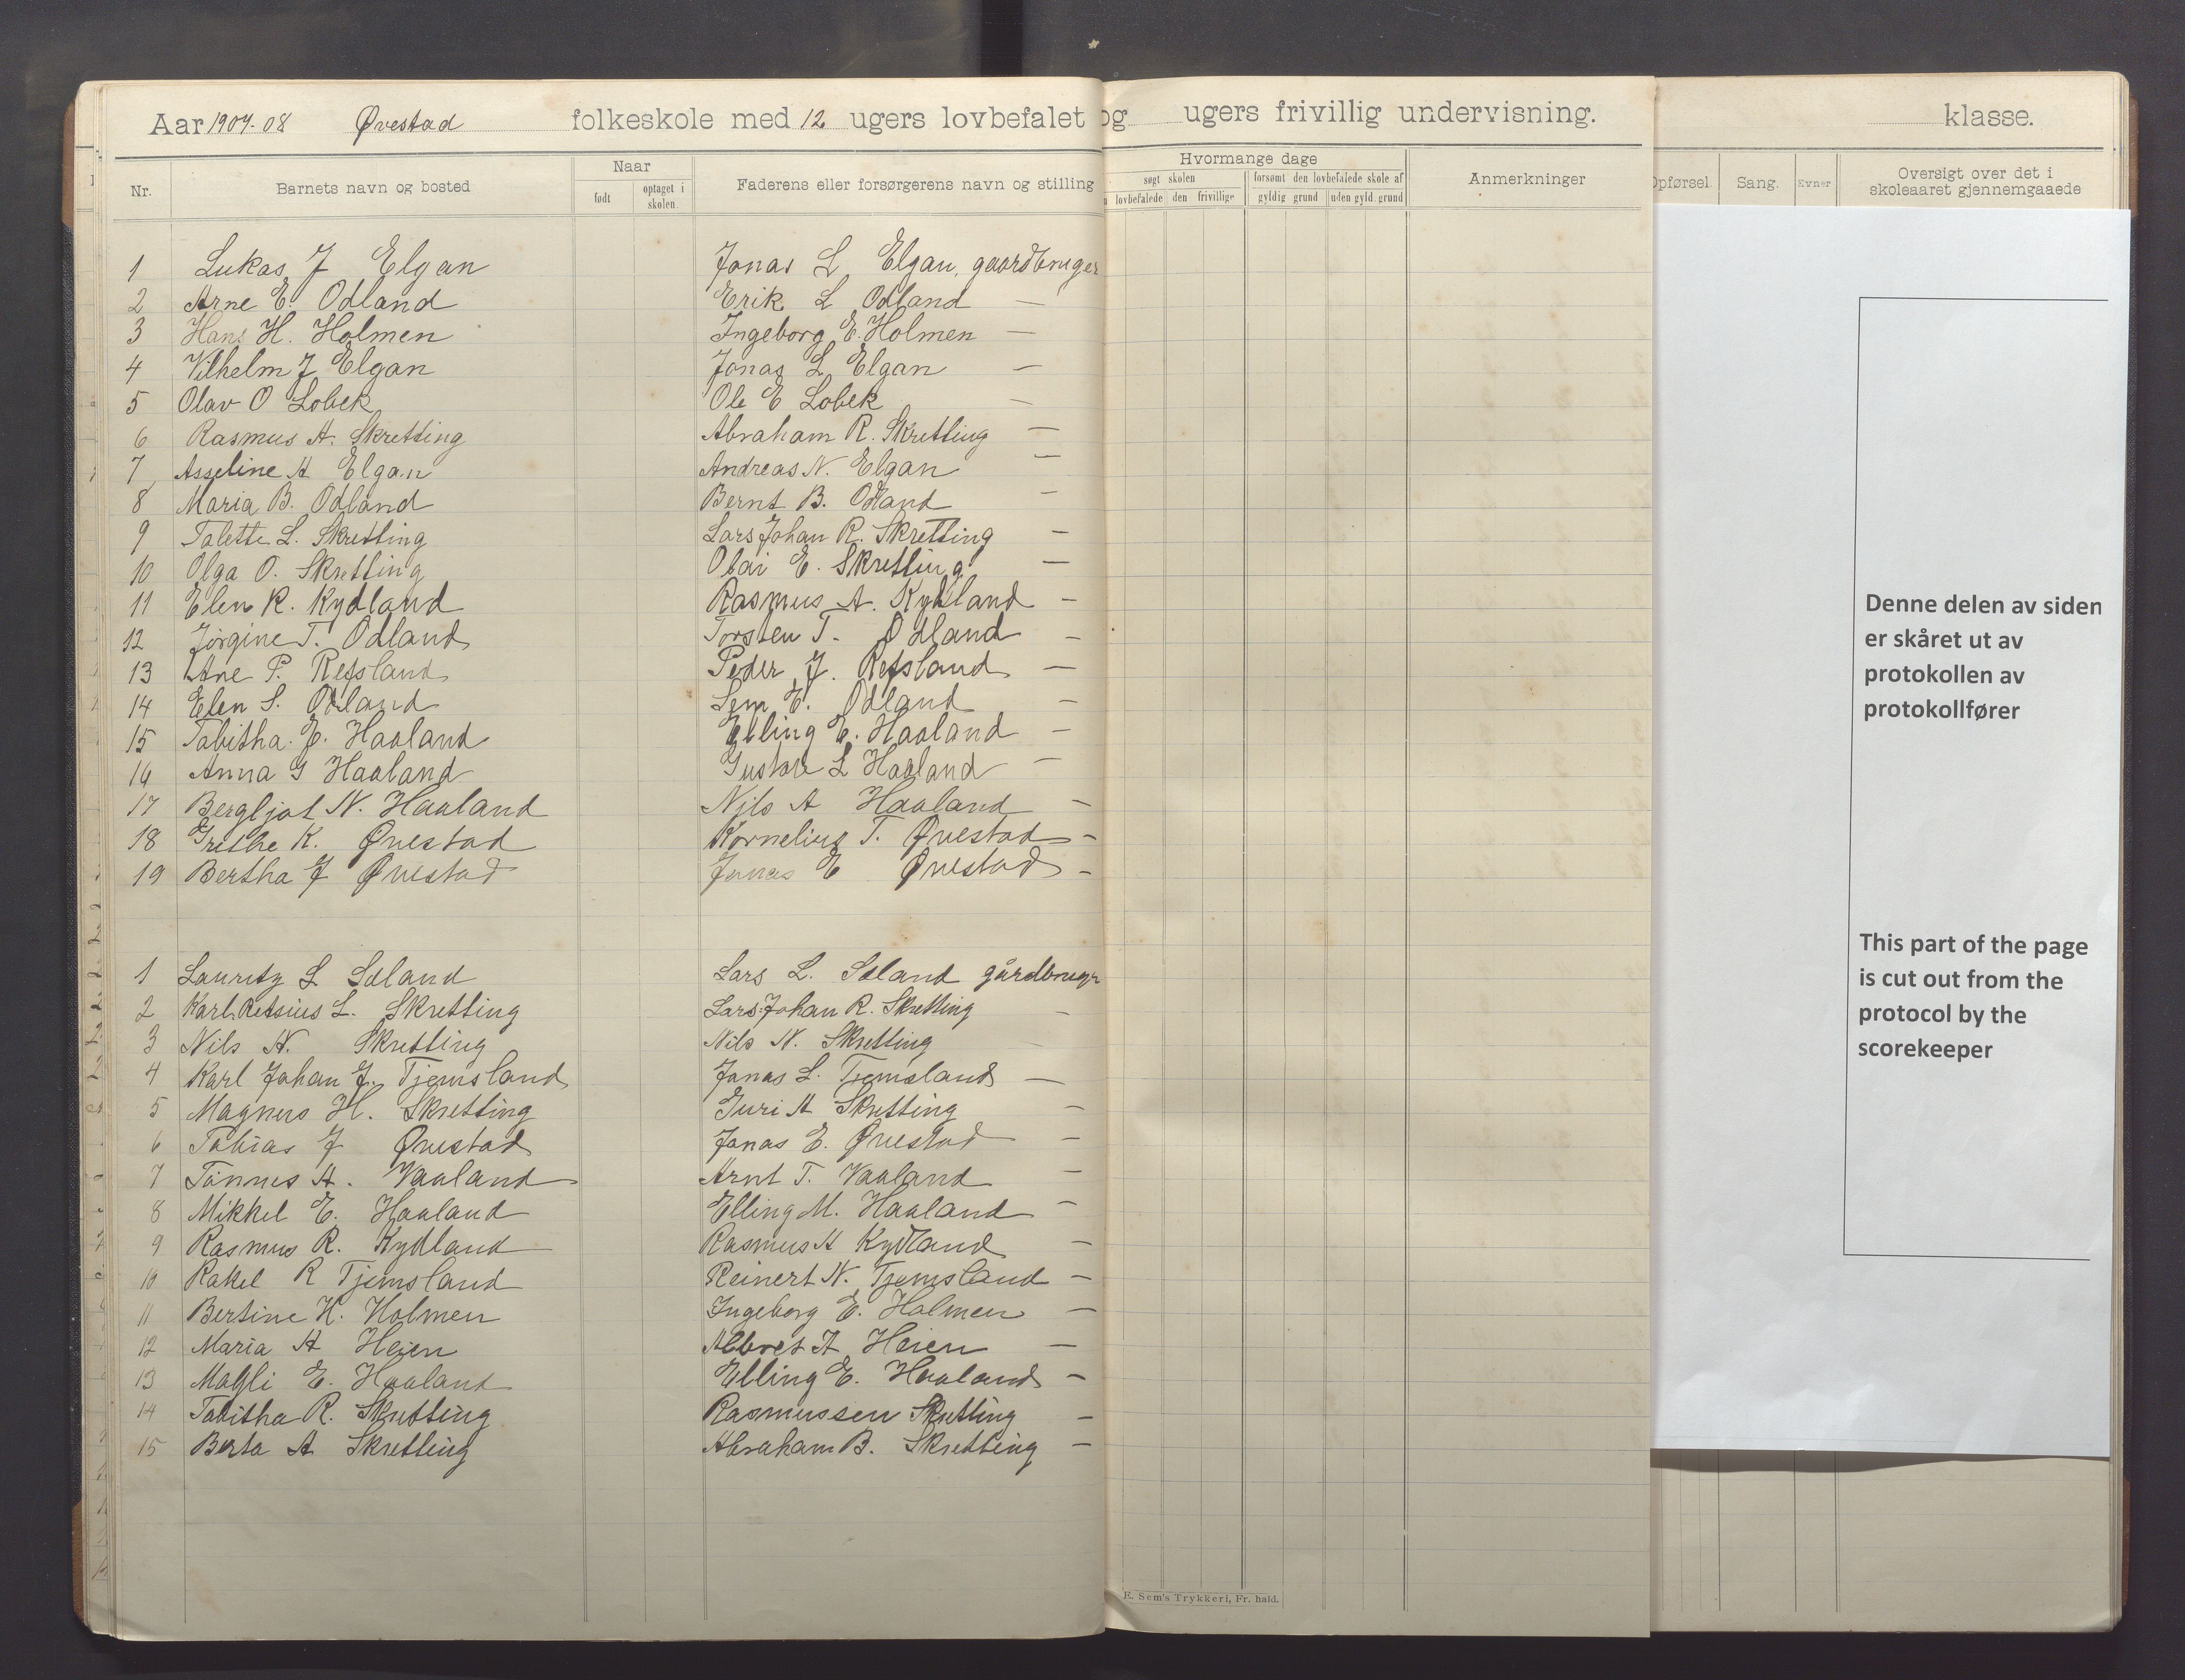 Aar 1907-08 Øvestad folkeskole med 12 ugers lovbefalet og ugers frivillig undervisning.
klasse.
Nr. Barnets navn og bosted
Naar
født
optaget i skolen.
Faderens eller forsørgerens navn og stilling
Hvormange dage
søgt skolen
forsømt den lovbefalede skole af
lovbefalede den frivillige gyldig grund uden gyld. grund
Anmerkninger
Opførsel. Sang. Evner
Oversigt over det i
skoleaaret gjennemgaaede
1 Lukas J Elgan Jonas L Elgan, gaardbruger
2 Arne E. Odland Erik L Odland —
3 Hans H. Holmen Ingeborg E. Holmen —
4 Vilhelm J Elgan Jonas L Elgan —
5 Olav O Lobek Ole E Lobek —
6 Rasmus A. Skretting Abraham R. Skretting —
7 Asseline A Elgan Andreas N. Elgan —
8 Maria B. Odland Bernt B. Odland —
9 Talette L. Skretting Lars Johan R. Skretting —
10 Olga O. Skretting Olai E. Skretting —
11 Elen R. Kydland Rasmus A. Kydland —
12 Jørgine T. Odland Torsten T. Odland —
13 Ane P. Refsland Peder J. Refsland —
14 Elen S. Odland Sem E. Odland —
15 Tabitha. E. Haaland Elling E. Haaland —
16 Anna G Haaland Gustav L Haaland —
17 Bergljot N. Haaland Nils A Haaland —
18 Grethe K. Øvestad Kornelius T. Øvestad —
19 Bertha J Øvestad Jonas E Øvestad —
1 Lauritz L Sæland Lars L. Sæland gårdbruger
2 Karl Retsius L. Skretting Lars Johan R. Skretting —
3 Nils N. Skretting Nils N. Skretting
4 Karl Johan J. Tjemsland Jonas L. Tjemsland —
5 Magnus H. Skretting Guri A Skretting —
6 Tobias J Øvestad Jonas E. Øvestad —
7 Tønnes A. Vaaland Arnt T. Vaaland —
8 Mikkel E. Haaland Elling M. Haaland —
9 Rasmus R. Kydland Rasmus A Kydland —
10 Rakel R Tjemsland Reinert N. Tjemsland —
11 Bertine H. Holmen Ingeborg E. Holmen —
12 Maria A Heien Albret A Heien —
13 Magli E. Haaland Elling E. Haaland —
14 Tabitha R. Skretting Rasmussen Skretting —
15 Berta A Skretting Abraham B. Skretting —
E. Sem's Trykkeri, Fr. hald.
Denne delen av siden
er skåret ut av
protokollen av
protokollfører
This part of the page
is cut out from the
protocol by the
scorekeeper